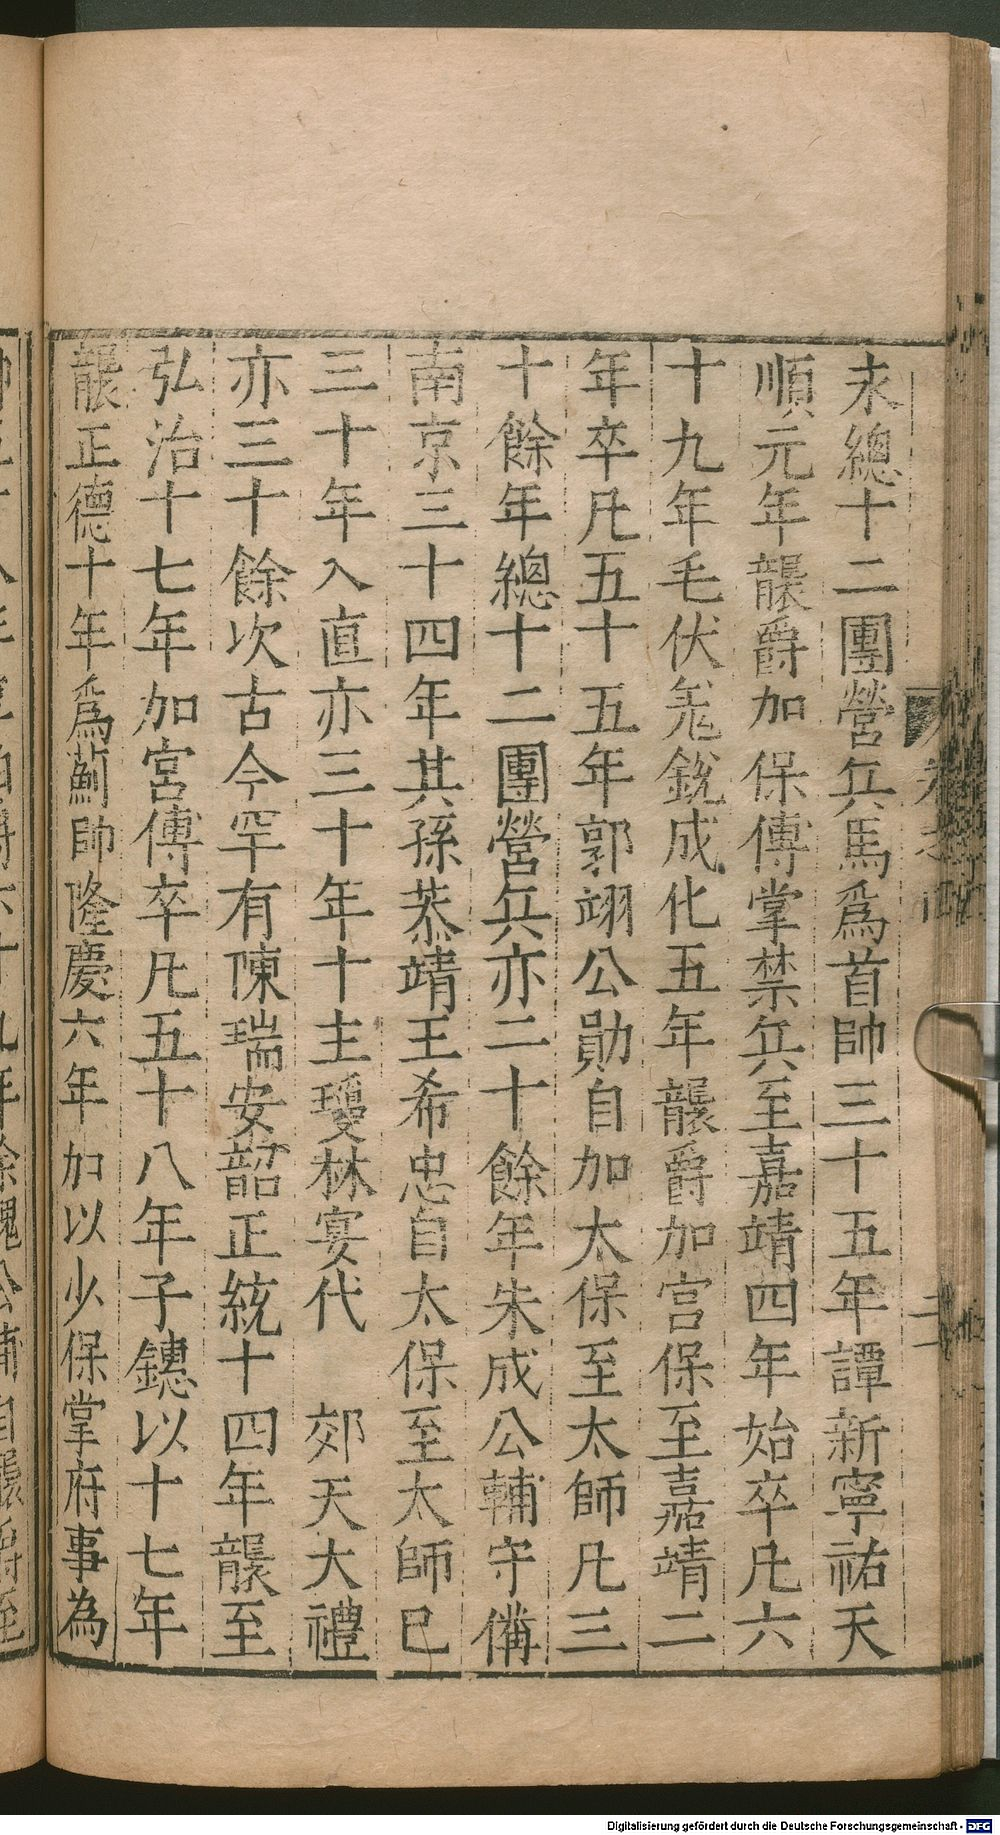 永總十二團營兵馬爲首帥三十五年譚新寧祐天
順元年襲爵加保傅掌禁兵至嘉靖四年始卒凡六
十九年毛伏羗銳成化五年襲爵加宫保至嘉靖二
年卒凡五十五年郭翊公勛自加太保至太師凡三
十餘年總十二團營兵亦二十餘年朱成公輔守備
南京三十四年其孫恭靖王希忠自太保至太師巳
三十年入直亦三十年十主瓊林宴代 郊天大禮
亦三十餘次古今罕有陳瑞安韶正統十四年襲至
弘治十七年加宮傅卒凡五十八年子鏸以十七年
襲正德十年爲薊帥隆慶六年加以少保掌府事為
Digitalisierung gefördert durch die Deutsche Forschungsgemeinschaft - DFG